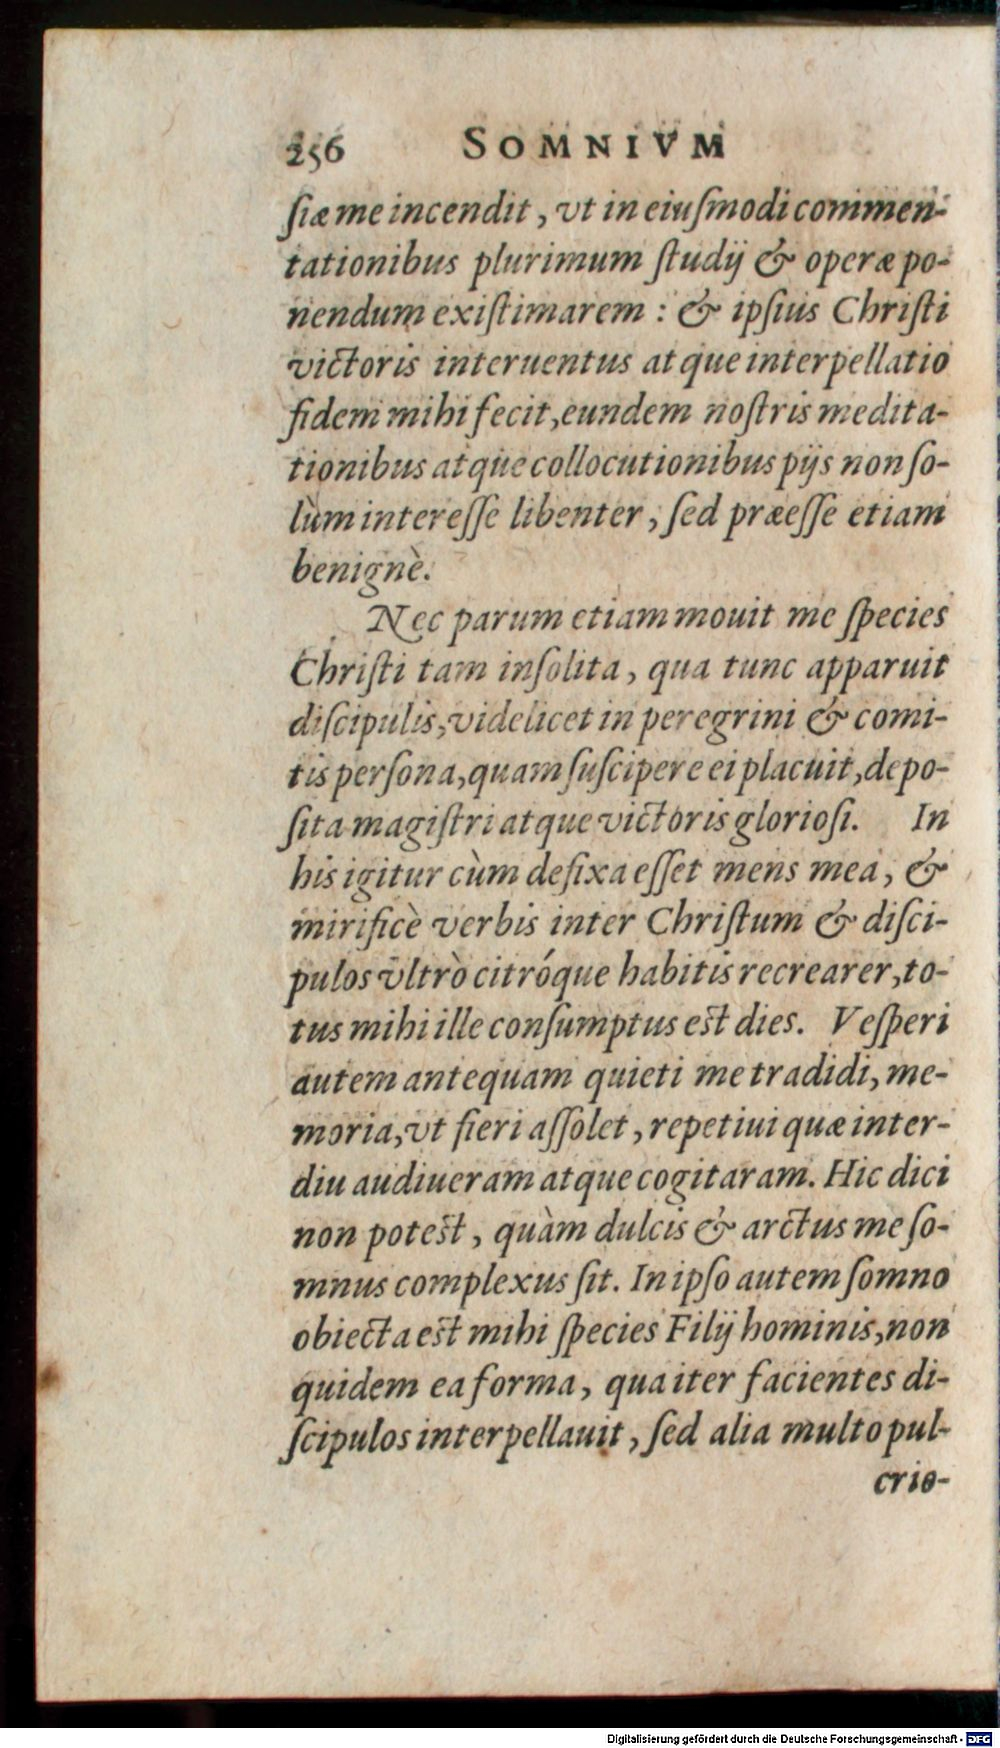 256 SOMNIVM
ſiæ me incendit, vt in eiuſmodi commen-
tationibus plurimum ſtudij & operæ po-
nendum exiſtimarem : & ipſius Chriſti
victoris interuentus atque interpellatio
fidem mihi fecit, eundem noſtris medita-
tionibus atque collocutionibus pijs non ſo-
lùm intereſſe libenter, ſed præeſſe etiam
benignè.
Nec parum etiam mouit me ſpecies
Chriſti tam inſolita, qua tunc apparuit
diſcipulis, videlicet in peregrini & comi-
tis perſona, quam ſuſcipere ei placuit, depo-
ſita magiſtri atque victoris glorioſi. In
his igitur cùm defixa eſſet mens mea, &
mirificè verbis inter Chriſtum & diſci-
pulos vltrò citróque habitis recrearer, to-
tus mihi ille conſumptus eſt dies. Veſperi
autem antequam quieti me tradidi, me-
moria, vt fieri aſſolet, repetiui quæ inter-
diu audiueram atque cogitaram. Hic dici
non poteſt, quàm dulcis & arctus me ſo-
mnus complexus ſit. In ipſo autem ſomno
obiecta eſt mihi ſpecies Filij hominis, non
quidem ea forma, qua iter facientes di-
ſcipulos interpellauit, ſed alia multo pul-
crio-
Digitalisierung gefördert durch die Deutsche Forschungsgemeinschaft - DFG